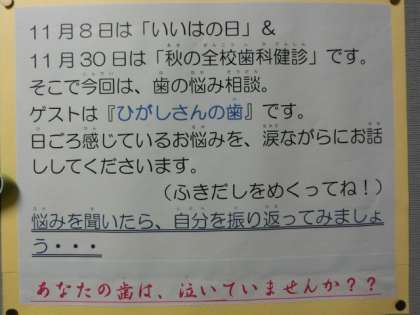 11月8日は「いいはの日」&
11月30日は「秋の全校歯科健診」です。
そこで今回は、歯の悩み相談。
ゲストは『ひがしさんの歯』です。
日ごろ感じているお悩みを、涙ながらにお話
ししてくださいます。
（ふきだしをめくってね！）
悩みを聞いたら、自分を振り返ってみましょ
う・・・
あなたの歯は、泣いていませんか？？